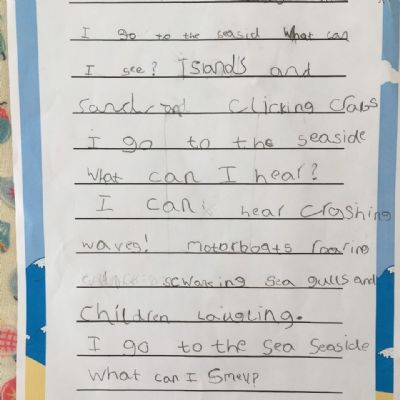 I go to the seasid What can
I see? Islands and
Sand and Clicking Crabs
i go to the seaside
What can I hear?
I can hear Crashing
waves! motorboats roaring
scwarking Sea gulls and
Children Laugting.
I go to the Sea Seaside
What can I Smeyp